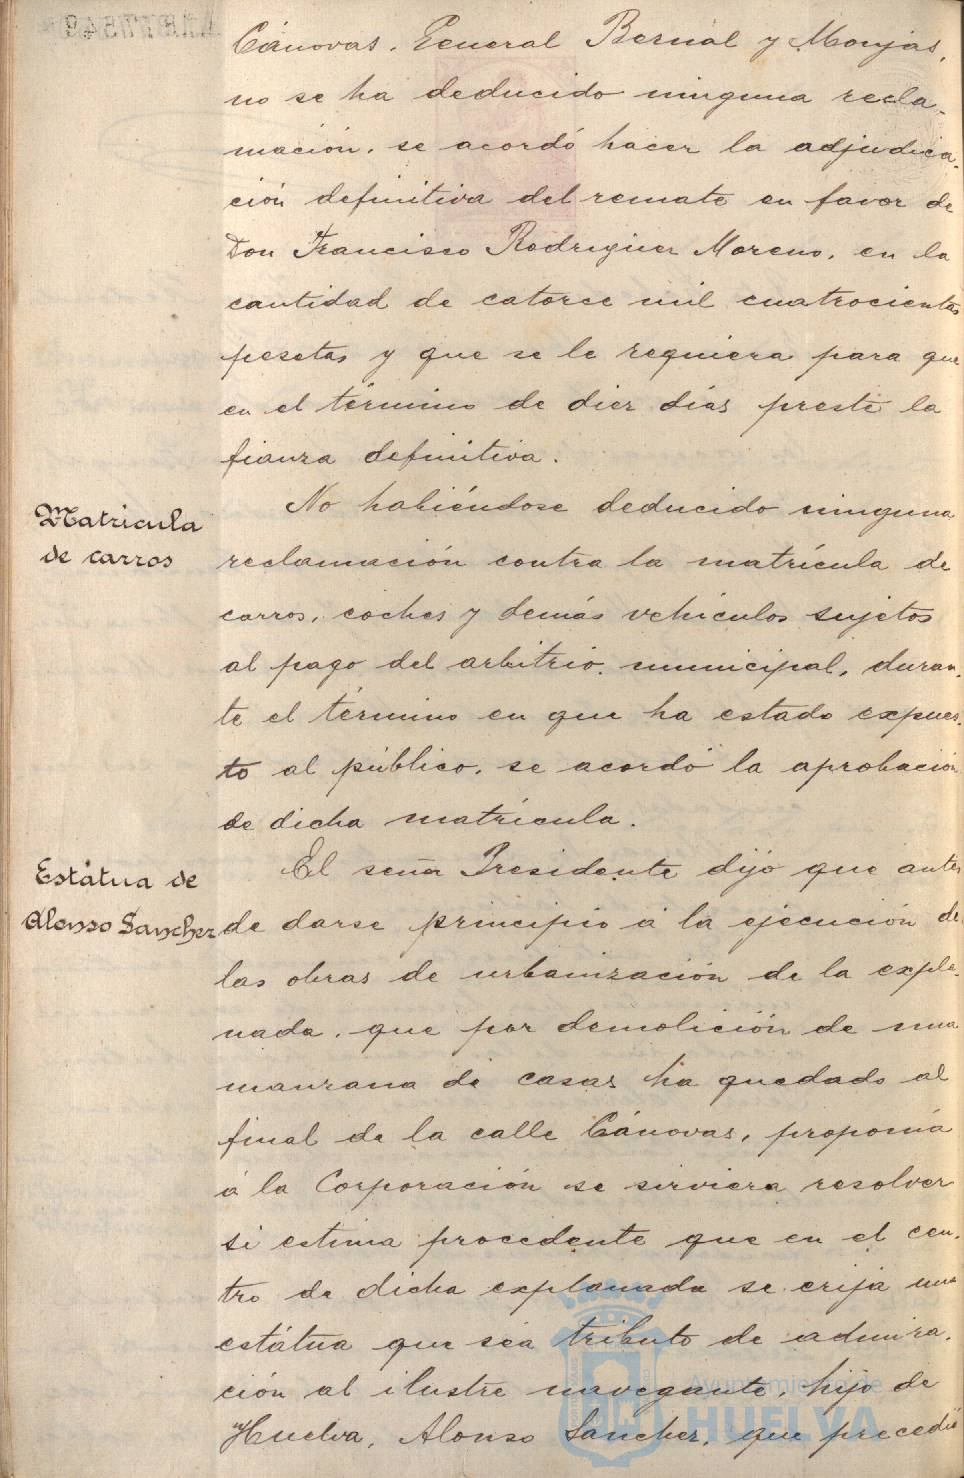 Cánovas, General Bernal y Monjas,
no se ha deducido ninguna recla-
mación, se acordó hacer la adjudica-
ción definitiva del remate en favor de
Don Francisco Rodriguez Moreno, en la
cantidad de catorce mil cuatrocientas
pesetas y que se le requiera para que
en el término de diez días preste la
fianza definitiva.
Matrícula
de carros
No habiéndose deducido ninguna
reclamación contra la matrícula de
carros, coches y demás vehículos sujetos
al pago del arbitrio municipal, duran-
te el término en que ha estado expues-
to al público, se acordó la aprobación
de dicha matrícula.
Estátua de
Alonso Sanchez
El señor Presidente dijo que antes
de darse principio á la ejecución de
las obras de urbanización de la expla-
nada, que por demolición de una
manzana de casas ha quedado al
final de la calle Cánovas, proponía
á la Corporación se sirviera resolver
si estima procedente que en el cen-
tro de dicha explanada se erija una
estátua que sea tributo de admira-
ción al ilustre navegante, hijo de
Huelva, Alonso Sanchez, que precedió
Ayuntamiento de
HUELVA